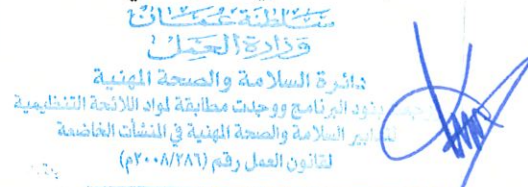 سلطنة عمان
وزارة العمل
دائرة السلامة والصحة المهنية
بنود البرنامج ووجدت مطابقة لمواد اللائحة التنظيمية
لتدابير السلامة والصحة المهنية في المنشآت الخاضعة
لقانون العمل رقم (٢٠٠٨/٢٨٦م)